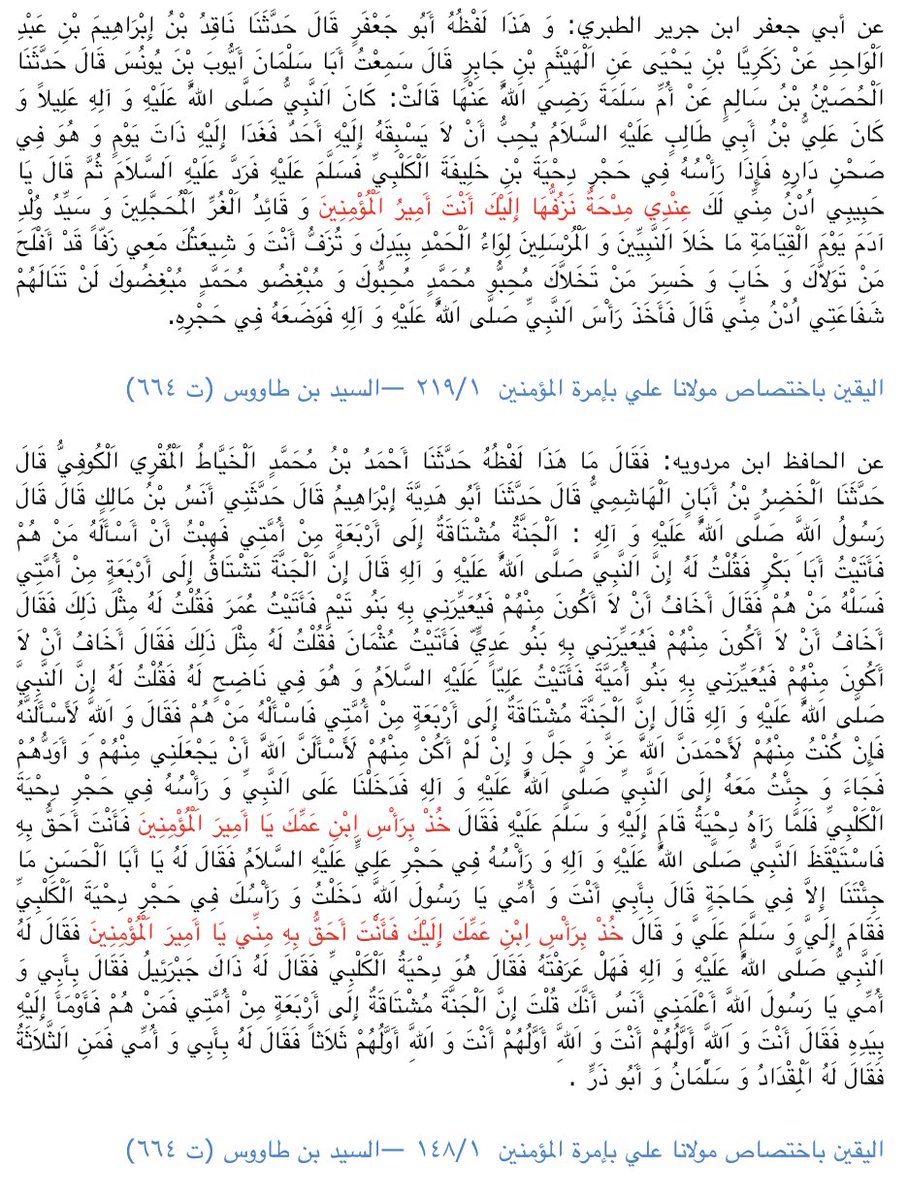 عن أبي جعفر ابن جرير الطبري: وَ هَذَا لَفْظُهُ أَبُو جَعْفَرٍ قَالَ حَدَّثَنَا نَاقِدُ بْنُ إِبْرَاهِيمَ بْنِ عَبْدِ
اَلْوَاحِدِ عَنْ زَكَرِيَّا بْنِ يَحْيَى عَنِ اَلْهَيْثَمِ بْنِ جَابِرٍ قَالَ سَمِعْتُ أَبَا سَلْمَانَ أَيُّوبَ بْنَ يُونُسَ قَالَ حَدَّثَنَا
اَلْحُصَيْنُ بْنُ سَالِمٍ عَنْ أُمِّ سَلَمَةَ رَضِيَ اَللَّهُ عَنْهَا قَالَتْ: كَانَ اَلنَّبِيُّ صَلَّى اَللَّهُ عَلَيْهِ وَ آلِهِ عَلِيلاً وَ
كَانَ عَلِيُّ بْنُ أَبِي طَالِبٍ عَلَيْهِ السَّلاَمُ يُحِبُّ أَنْ لاَ يَسْبِقَهُ إِلَيْهِ أَحَدٌ فَغَدَا إِلَيْهِ ذَاتَ يَوْمٍ وَ هُوَ فِي
صَحْنِ دَارِهِ فَإِذَا رَأْسُهُ فِي حَجْرِ دِحْيَةَ بْنِ خَلِيفَةَ اَلْكَلْبِيِّ فَسَلَّمَ عَلَيْهِ فَرَدَّ عَلَيْهِ اَلسَّلاَمَ ثُمَّ قَالَ يَا
حَبِيبِي اُدْنُ مِنِّي لَكَ عِنْدِي مِدْحَةٌ نَزُفُّهَا إِلَيْكَ أَنْتَ أَمِيرُ اَلْمُؤْمِنِينَ وَ قَائِدُ اَلْغُرِّ اَلْمُحَجَّلِينَ وَ سَيِّدُ وُلْدِ
آدَمَ يَوْمَ اَلْقِيَامَةِ مَا خَلاَ اَلنَّبِيِّينَ وَ اَلْمُرْسَلِينَ لِوَاءُ اَلْحَمْدِ بِيَدِكَ وَ تُزَفُّ أَنْتَ وَ شِيعَتُكَ مَعِي زَفّاً قَدْ أَفْلَحَ
مَنْ تَوَلاَّكَ وَ خَابَ وَ خَسِرَ مَنْ تَخَلاَّكَ مُحِبُّو مُحَمَّدٍ مُحِبُّوكَ وَ مُبْغِضُو مُحَمَّدٍ مُبْغِضُوكَ لَنْ تَنَالَهُمْ
شَفَاعَتِي اُدْنُ مِنِّي قَالَ فَأَخَذَ رَأْسَ اَلنَّبِيِّ صَلَّى اَللَّهُ عَلَيْهِ وَ آلِهِ فَوَضَعَهُ فِي حَجْرِهِ.
اليقين باختصاص مولانا علي بإمرة المؤمنين ٢١٩/١ —السيد بن طاووس (ت ٦٦٤)
عن الحافظ ابن مردويه: فَقَالَ مَا هَذَا لَفْظُهُ حَدَّثَنَا أَحْمَدُ بْنُ مُحَمَّدٍ اَلْخَيَّاطُ اَلْمُقْرِي اَلْكُوفِيُّ قَالَ
حَدَّثَنَا اَلْخَضِرُ بْنُ أَبَانٍ اَلْهَاشِمِيُّ قَالَ حَدَّثَنَا أَبُو هَدِيَّةَ إِبْرَاهِيمُ قَالَ حَدَّثَنِي أَنَسُ بْنُ مَالِكٍ قَالَ قَالَ
رَسُولُ اَللَّهِ صَلَّى اَللَّهُ عَلَيْهِ وَ آلِهِ : اَلْجَنَّةُ مُشْتَاقَةٌ إِلَى أَرْبَعَةٍ مِنْ أُمَّتِي فَهِبْتُ أَنْ أَسْأَلَهُ مَنْ هُمْ
فَأَتَيْتُ أَبَا بَكْرٍ فَقُلْتُ لَهُ إِنَّ اَلنَّبِيَّ صَلَّى اَللَّهُ عَلَيْهِ وَ آلِهِ قَالَ إِنَّ اَلْجَنَّةَ تَشْتَاقُ إِلَى أَرْبَعَةٍ مِنْ أُمَّتِي
فَسَلْهُ مَنْ هُمْ فَقَالَ أَخَافُ أَنْ لاَ أَكُونَ مِنْهُمْ فَيُعَيِّرَنِي بِهِ بَنُو تَيْمٍ فَأَتَيْتُ عُمَرَ فَقُلْتُ لَهُ مِثْلَ ذَلِكَ فَقَالَ
أَخَافُ أَنْ لاَ أَكُونَ مِنْهُمْ فَيُعَيِّرَنِي بِهِ بَنُو عَدِيٍّ فَأَتَيْتُ عُثْمَانَ فَقُلْتُ لَهُ مِثْلَ ذَلِكَ فَقَالَ أَخَافُ أَنْ لاَ
أَكُونَ مِنْهُمْ فَيُعَيِّرَنِي بِهِ بَنُو أُمَيَّةَ فَأَتَيْتُ عَلِيّاً عَلَيْهِ السَّلاَمُ وَ هُوَ فِي نَاضِحٍ لَهُ فَقُلْتُ لَهُ إِنَّ اَلنَّبِيَّ
صَلَّى اَللَّهُ عَلَيْهِ وَ آلِهِ قَالَ إِنَّ اَلْجَنَّةَ مُشْتَاقَةٌ إِلَى أَرْبَعَةٍ مِنْ أُمَّتِي فَاسْأَلْهُ مَنْ هُمْ فَقَالَ وَ اَللَّهِ لَأَسْأَلَنَّهُ
فَإِنْ كُنْتُ مِنْهُمْ لَأَحْمَدَنَّ اَللَّهَ عَزَّ وَ جَلَّ وَ إِنْ لَمْ أَكُنْ مِنْهُمْ لَأَسْأَلَنَّ اَللَّهَ أَنْ يَجْعَلَنِي مِنْهُمْ وَ أَوَدُّهُمْ
فَجَاءَ وَ جِئْتُ مَعَهُ إِلَى اَلنَّبِيِّ صَلَّى اَللَّهُ عَلَيْهِ وَ آلِهِ فَدَخَلْنَا عَلَى اَلنَّبِيِّ وَ رَأْسُهُ فِي حَجْرِ دِحْيَةَ
اَلْكَلْبِيِّ فَلَمَّا رَآهُ دِحْيَةُ قَامَ إِلَيْهِ وَ سَلَّمَ عَلَيْهِ فَقَالَ خُذْ بِرَأْسِ اِبْنِ عَمِّكَ يَا أَمِيرَ اَلْمُؤْمِنِينَ فَأَنْتَ أَحَقُّ بِهِ
فَاسْتَيْقَظَ اَلنَّبِيُّ صَلَّى اَللَّهُ عَلَيْهِ وَ آلِهِ وَ رَأْسُهُ فِي حَجْرِ عَلِيٍّ عَلَيْهِ السَّلاَمُ فَقَالَ لَهُ يَا أَبَا اَلْحَسَنِ مَا
جِئْتَنَا إِلاَّ فِي حَاجَةٍ قَالَ بِأَبِي أَنْتَ وَ أُمِّي يَا رَسُولَ اَللَّهِ دَخَلْتُ وَ رَأْسُكَ فِي حَجْرِ دِحْيَةَ اَلْكَلْبِيِّ
فَقَامَ إِلَيَّ وَ سَلَّمَ عَلَيَّ وَ قَالَ خُذْ بِرَأْسِ اِبْنِ عَمِّكَ إِلَيْكَ فَأَنْتَ أَحَقُّ بِهِ مِنِّي يَا أَمِيرَ اَلْمُؤْمِنِينَ فَقَالَ لَهُ
اَلنَّبِيُّ صَلَّى اَللَّهُ عَلَيْهِ وَ آلِهِ فَهَلْ عَرَفْتَهُ فَقَالَ هُوَ دِحْيَةُ اَلْكَلْبِيِّ فَقَالَ لَهُ ذَاكَ جَبْرَئِيلُ فَقَالَ بِأَبِي وَ
أُمِّي يَا رَسُولَ اَللَّهِ أَعْلَمَنِي أَنَسٌ أَنَّكَ قُلْتَ إِنَّ اَلْجَنَّةَ مُشْتَاقَةٌ إِلَى أَرْبَعَةٍ مِنْ أُمَّتِي فَمَنْ هُمْ فَأَوْمَأَ إِلَيْهِ
بِيَدِهِ فَقَالَ أَنْتَ وَ اَللَّهِ أَوَّلُهُمْ أَنْتَ وَ اَللَّهِ أَوَّلُهُمْ أَنْتَ وَ اَللَّهِ أَوَّلُهُمْ ثَلاَثاً فَقَالَ لَهُ بِأَبِي وَ أُمِّي فَمَنِ اَلثَّلاَثَةُ
فَقَالَ لَهُ اَلْمِقْدَادُ وَ سَلْمَانُ وَ أَبُو ذَرٍّ .
اليقين باختصاص مولانا علي بإمرة المؤمنين ١٤٨/١ —السيد بن طاووس (ت ٦٦٤)